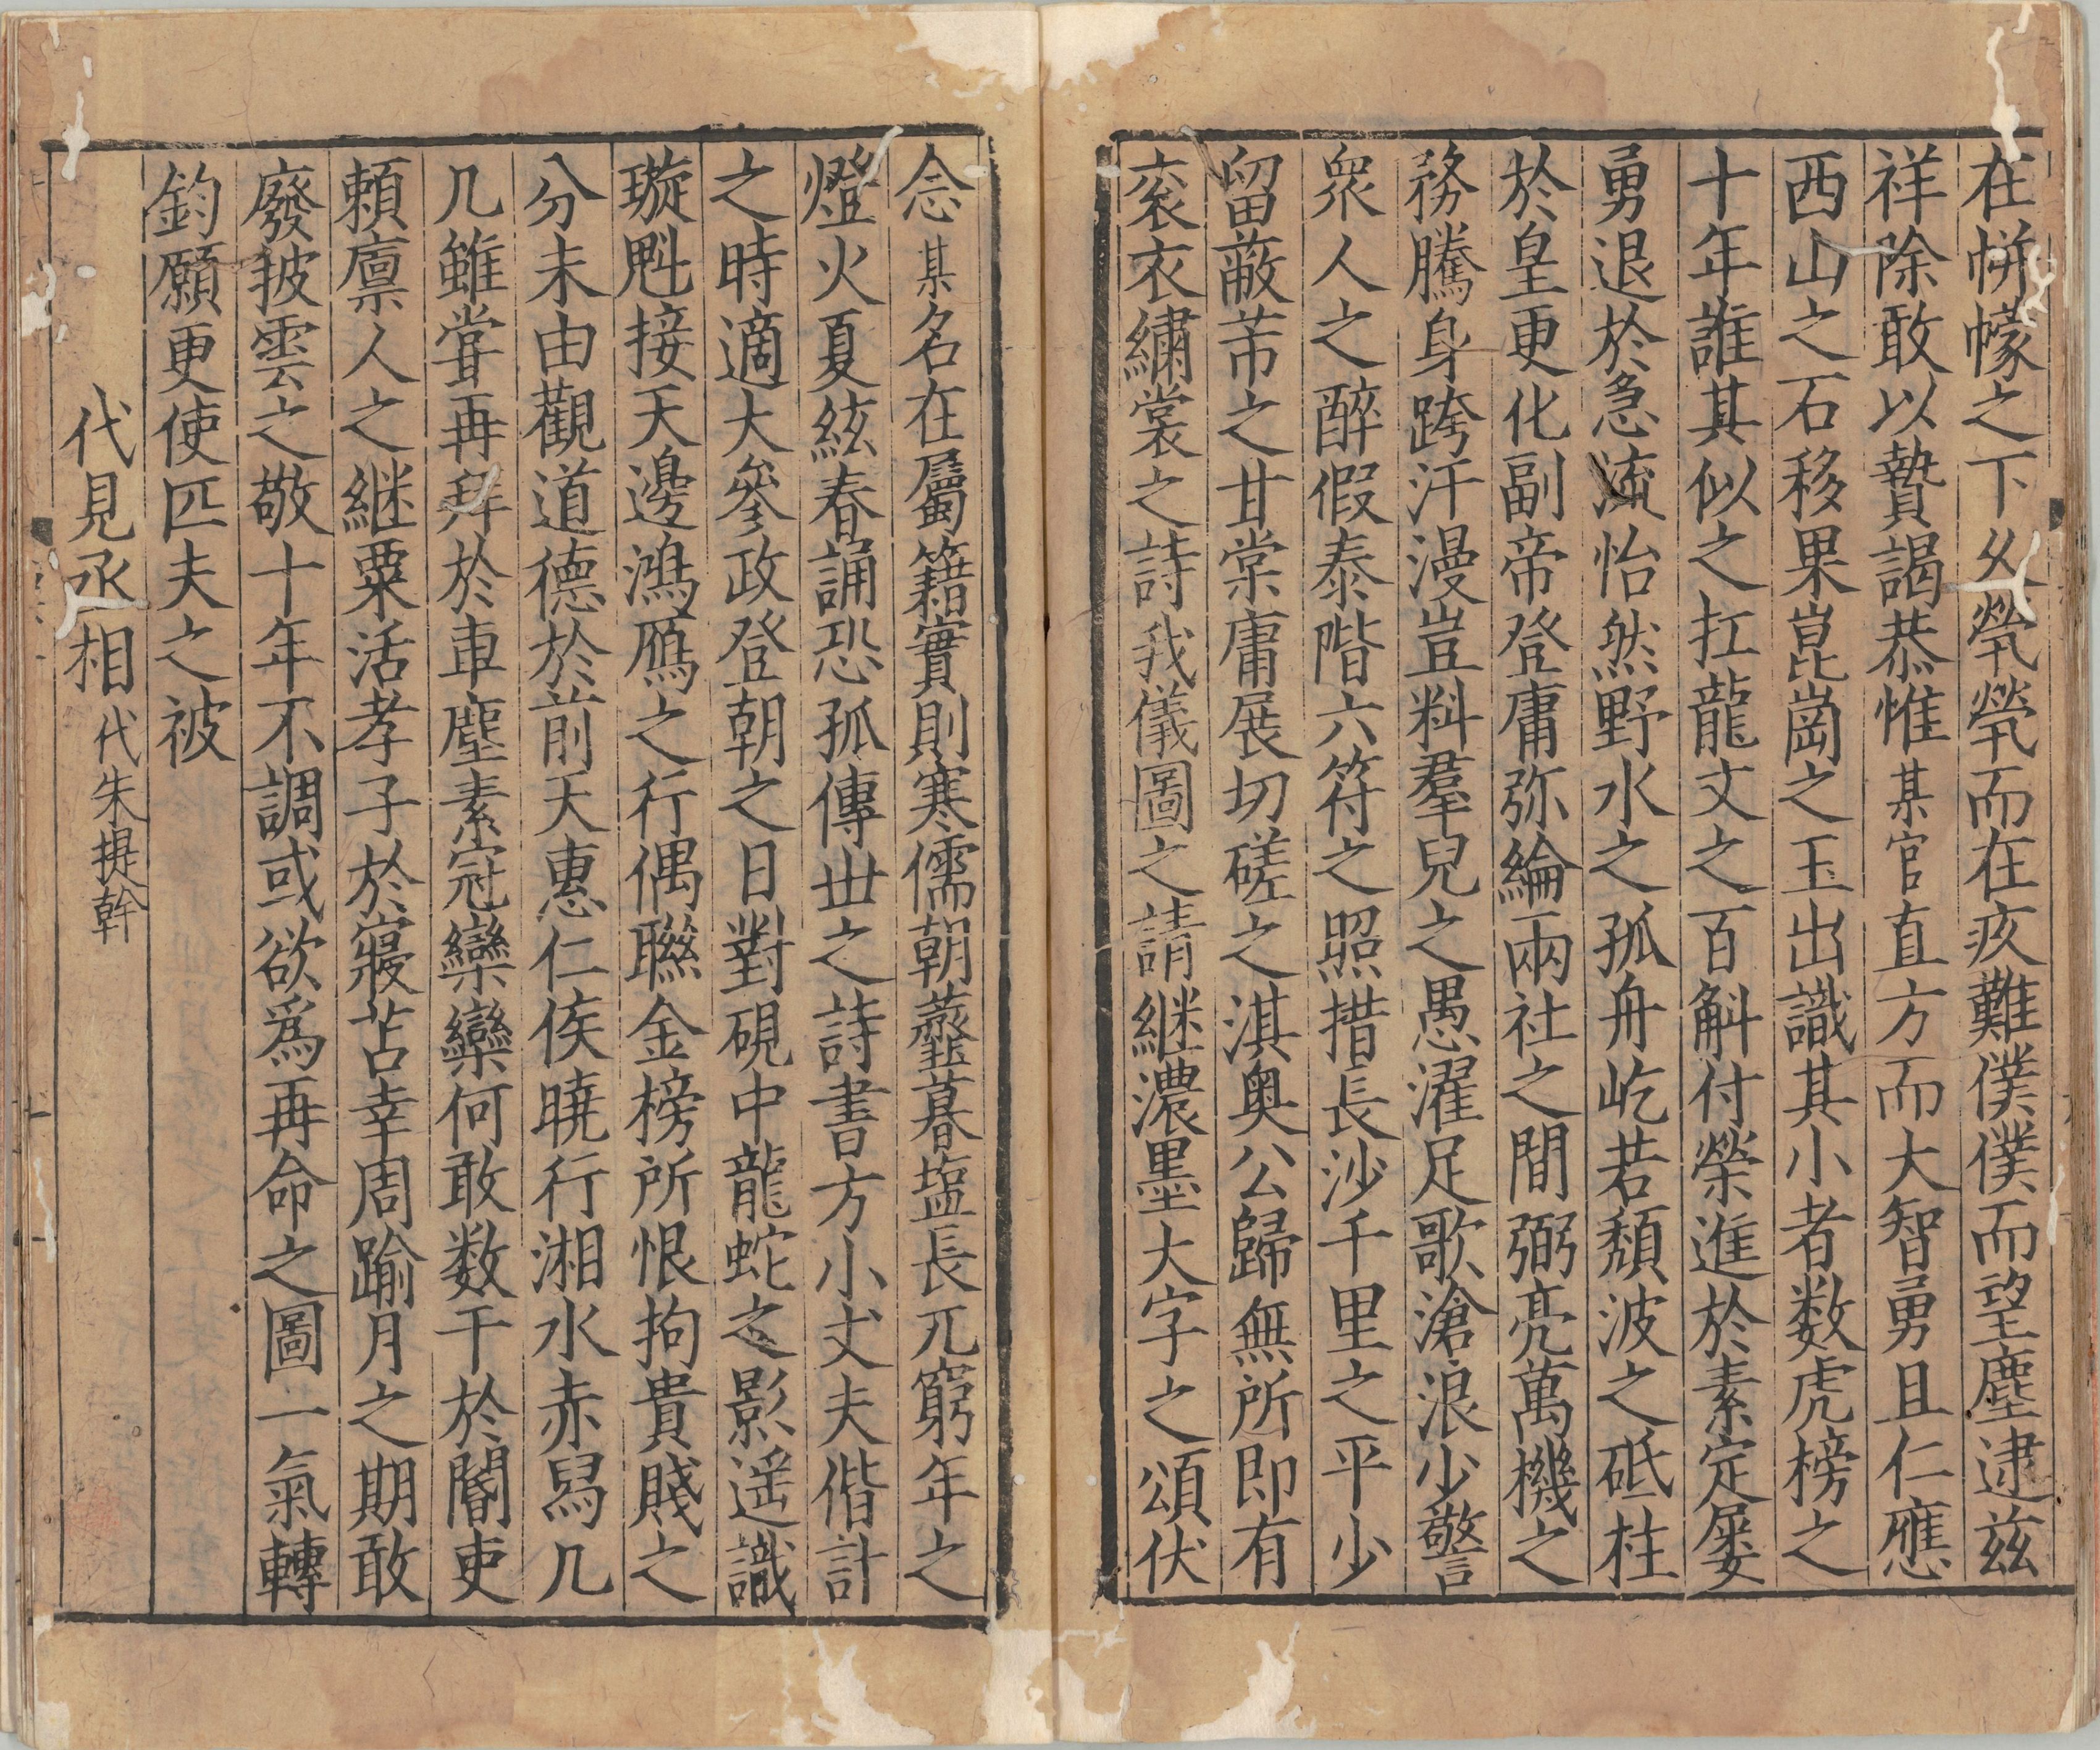 在帡幪之下幺煢煢而在疚難僕僕而望塵逮茲
祥除敢以贄謁恭惟某官直方而大智勇且仁應
西山之石移果崑崗之玉出識其小者数虎榜之
十年誰其似之扛龍文之百斛付榮進於素定屡
勇退於急流怡然野水之孤舟屹若頽波之砥柱
於皇更化副帝登庸弥綸兩社之間弼亮萬機之
務騰身跨汗漫豈料羣兒之愚濯足歌滄浪少警
衆人之醉假泰階六符之照措長沙千里之平少
留蔽芾之甘棠庸展切磋之淇奥公歸無所即有
衮衣繡裳之詩我儀圖之請継濃墨大字之頌伏
念某名在屬籍實則寒儒朝虀暮塩長兀窮年之
燈火夏絃春誦恐孤傳丗之詩書方小丈夫偕計
之時適大參政登朝之日對硯中龍蛇之影遥識
璇魁接天邊鴻鴈之行偶聮金榜所恨拘貴賤之
分未由觀道德於前天惠仁侯曉行湘水赤舄几
几雖甞再拜於車塵素冠欒欒何敢数干於閽吏
頼廪人之継粟活孝子於寢苫幸周踰月之期敢
廢披雲之敬十年不調或欲爲再命之圖一氣轉
鈞願更使匹夫之被
代見丞相代朱提幹